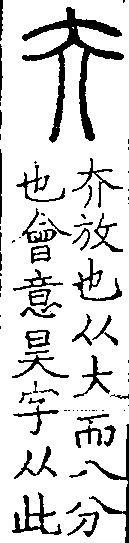 夰
夰放也从大而八分
也會意昊字从此